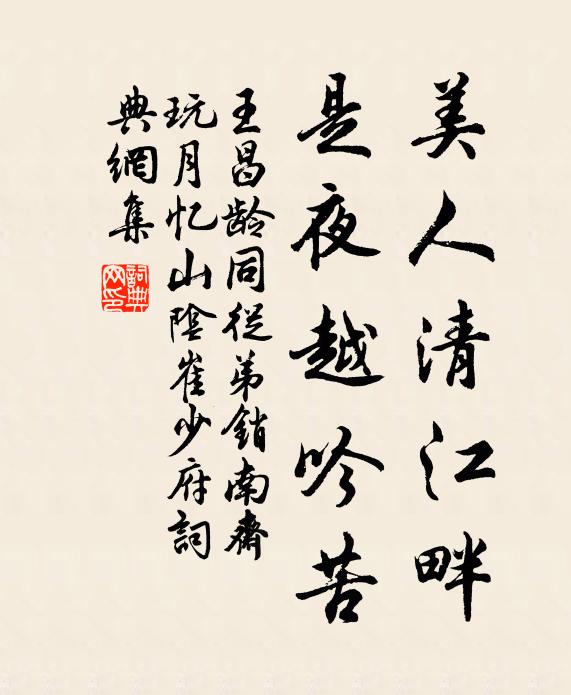 美人清江畔
是夜越吟苦
王昌龄同從弟銷南齋
玩月忆山陰崔少府詞
典網集
詞典网印